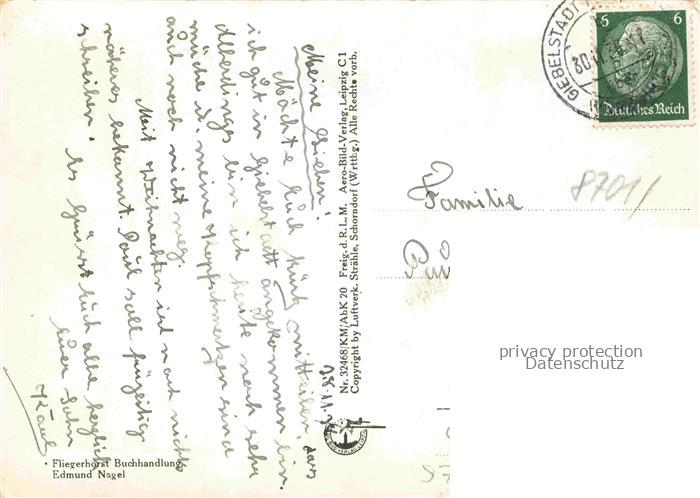 GIEBELSTADT
5 6
Deutsches Reich
8701/
Familie
privacy protection
Datenschutz
30.11.39
Meine Lieben!
Möchte Euch kurz mitteilen, dass
ich gut in Giebelstadt angekommen bin.
Allerdings bin ich heute noch sehr
müde u. meine Kopfschmerzen sind
auch noch nicht weg.
Mit Weihnachten ist noch nichts
näheres bekannt. Paul soll
schreiben. Es grüsst Euch alle herzlich
Euer Sohn
Karl
Nr. 32468/KM/AbK 20 Freig. d. R. L. M. Aero-Bild-Verlag, Leipzig C 1
Copyright by Luftverk. Strähle, Schorndorf (Wrttbg.) Alle Rechte vorb.
Fliegerhorst Buchhandlung
Edmund Nagel